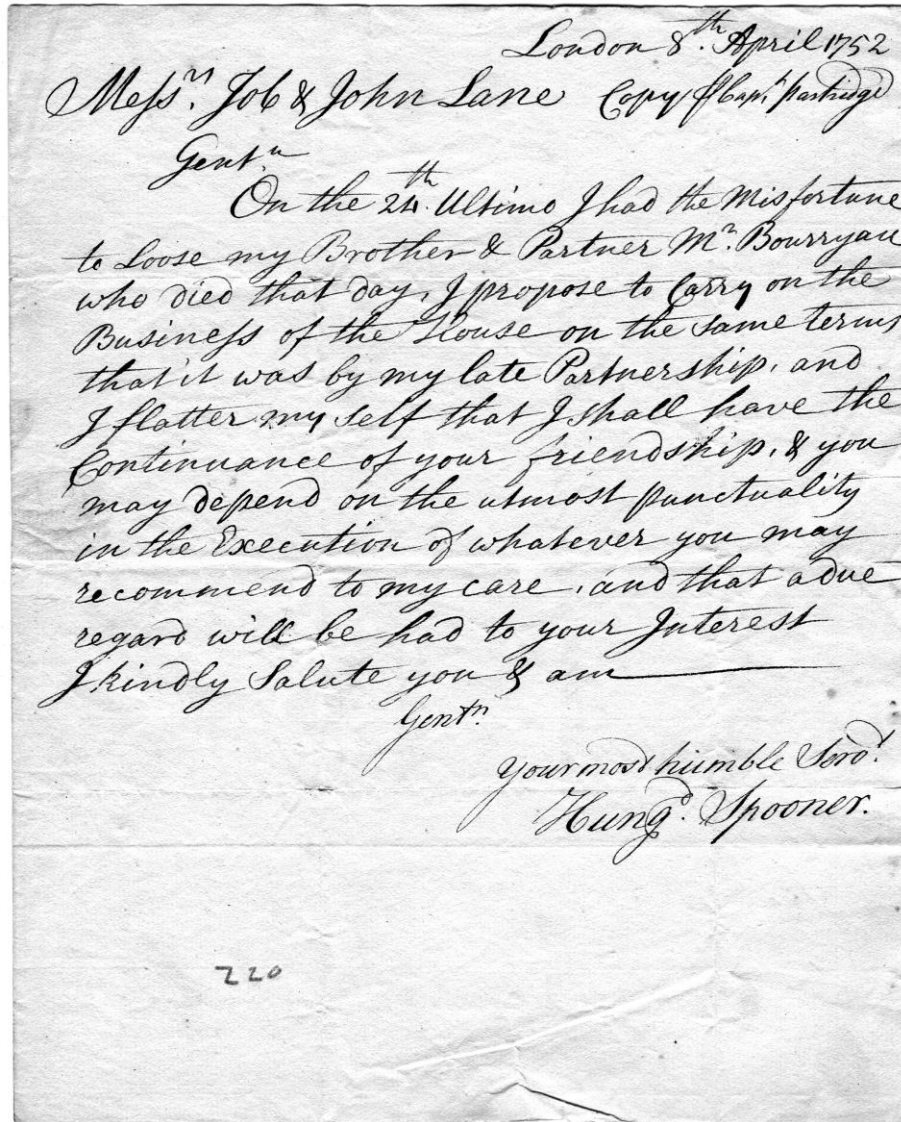 London 8th. April 1752
Messrs. Job & John Lane Copy ⅌ Capt. partridge
Gentn.
On the 24th. Ultimo I had the Misfortune
to Loose my Brother & Partner Mr. Bourryau
who died that day, I propose to Carry on the
Business of the House on the same terms
that it was by my late Partnership, and
I flatter my self that I shall have the
Continuance of your friendship, & you
may depend on the utmost punctuality
in the Execution of whatever you may
recommend to my care, and that a due
regard will be had to your Interest
I kindly Salute you & am
Gentn.
your most humble Servt.
Hungd. Spooner.
220